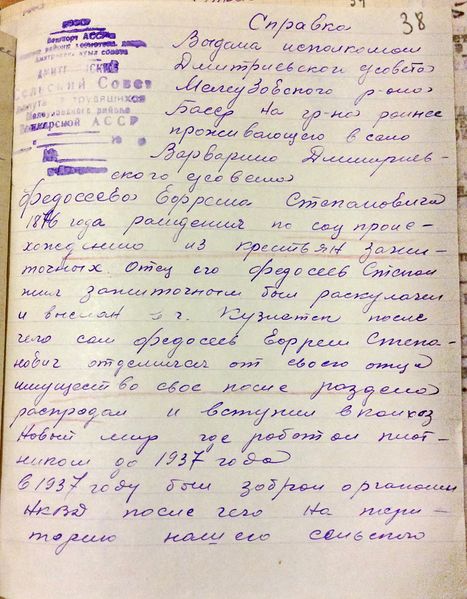 38
Справка
Башкирской АССР
Сельский Совет
Выдана исполкомом
Дмитриевского с/совета
Мелеузовского р-она
БАССР на гр-на ранее
проживающего в селе
Варварино Дмитриев-
ского с/совета
Федосеева Ефрема Степановича
года рождения по соц прои-
хождению из крестьян зажи-
точных. Отец его Федосеев Степан
жил зажиточным был раскулачен
и выслан в г. Кузнетск после
чего сам Федосеев Ефрем Степа-
нович отделился от своего отца
имущество свое после раздела
распродал и вступил в колхоз
Новый мир где работал плот-
ником до 1937 года
в 1937 году был забран органами
НКВД после чего на тери-
торию нашего сельского